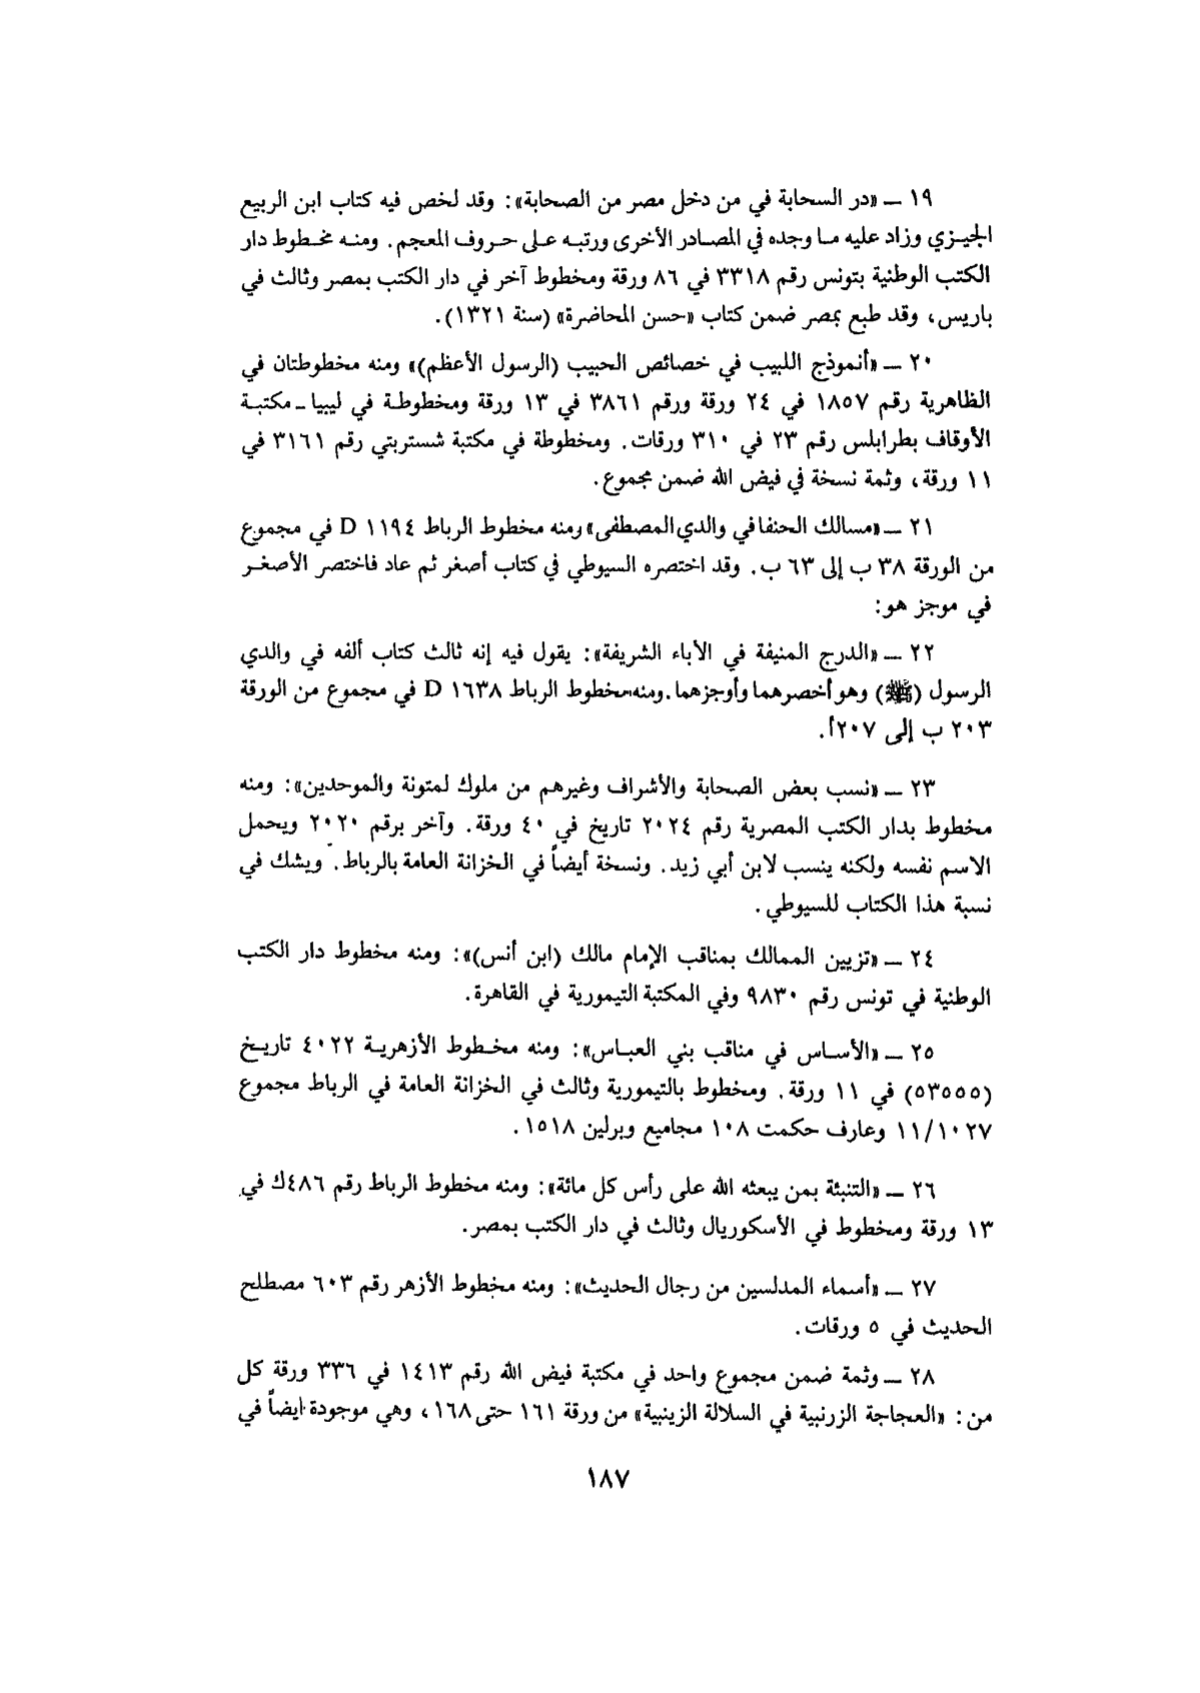 ١٩ ــ «در السحابة في من دخل مصر من الصحابة»: وقد لخص فيه كتاب ابن الربيع
الجيزي وزاد عليه ما وجده في المصادر الأخرى ورتبه على حروف المعجم. ومنه مخطوط دار
الكتب الوطنية بتونس رقم ٣٣١٨ في ٨٦ ورقة ومخطوط آخر في دار الكتب بمصر وثالث في
باريس، وقد طبع بمصر ضمن كتاب «حسن المحاضرة» (سنة ١٣٢١).
٢٠ ــ «أنموذج اللبيب في خصائص الحبيب (الرسول الأعظم)» ومنه مخطوطتان في
الظاهرية رقم ١٨٥٧ في ٢٤ ورقة ورقم ٣٨٦١ في ١٣ ورقة ومخطوطة في ليبيا ــ مكتبة
الأوقاف بطرابلس رقم ٢٣ في ٣١٠ ورقات. ومخطوطة في مكتبة شستربتي رقم ٣١٦١ في
١١ ورقة، وثمة نسخة في فيض الله ضمن مجموع.
٢١ ــ «مسالك الحنفا في والدي المصطفى» ومنه مخطوط الرباط ١١٩٤ D في مجموع
من الورقة ٣٨ ب إلى ٦٣ ب. وقد اختصره السيوطي في كتاب أصغر ثم عاد فاختصر الأصغر
في موجز هو:
٢٢ ــ «الدرج المنيفة في الأباء الشريفة»: يقول فيه إنه ثالث كتاب ألفه في والدي
الرسول (ﷺ) وهو أخصرهما وأوجزهما. ومنه مخطوط الرباط ١٦٣٨ D في مجموع من الورقة
٢٠٣ ب إلى ٢٠٧أ.
٢٣ ــ «نسب بعض الصحابة والأشراف وغيرهم من ملوك لمتونة والموحدين»: ومنه
مخطوط بدار الكتب المصرية رقم ٢٠٢٤ تاريخ في ٤٠ ورقة. وآخر برقم ٢٠٢٠ ويحمل
الاسم نفسه ولكنه ينسب لابن أبي زيد. ونسخة أيضاً في الخزانة العامة بالرباط. ويشك في
نسبة هذا الكتاب للسيوطي.
٢٤ ــ «تزيين الممالك بمناقب الإمام مالك (ابن أنس)»: ومنه مخطوط دار الكتب
الوطنية في تونس رقم ٩٨٣٠ وفي المكتبة التيمورية في القاهرة.
٢٥ ــ «الأساس في مناقب بني العباس»: ومنه مخطوط الأزهرية ٤٠٢٢ تاريخ
(٥٣٥٥٥) في ١١ ورقة. ومخطوط بالتيمورية وثالث في الخزانة العامة في الرباط مجموع
١١/١٠٢٧ وعارف حكمت ١٠٨ مجاميع وبرلين ١٥١٨.
٢٦ ــ «التنبئة بمن يبعثه الله على رأس كل مائة»: ومنه مخطوط الرباط رقم ٤٨٦ك في
١٣ ورقة ومخطوط في الأسكوريال وثالث في دار الكتب بمصر.
٢٧ ــ «أسماء المدلسين من رجال الحديث»: ومنه مخطوط الأزهر رقم ٦٠٣ مصطلح
الحديث في ٥ ورقات.
٢٨ ــ وثمة ضمن مجموع واحد في مكتبة فيض الله رقم ١٤١٣ في ٣٣٦ ورقة كل
من: «العجاجة الزرنبية في السلالة الزينبية» من ورقة ١٦١ حتى ١٦٨، وهي موجودة ايضاً في
١٨٧